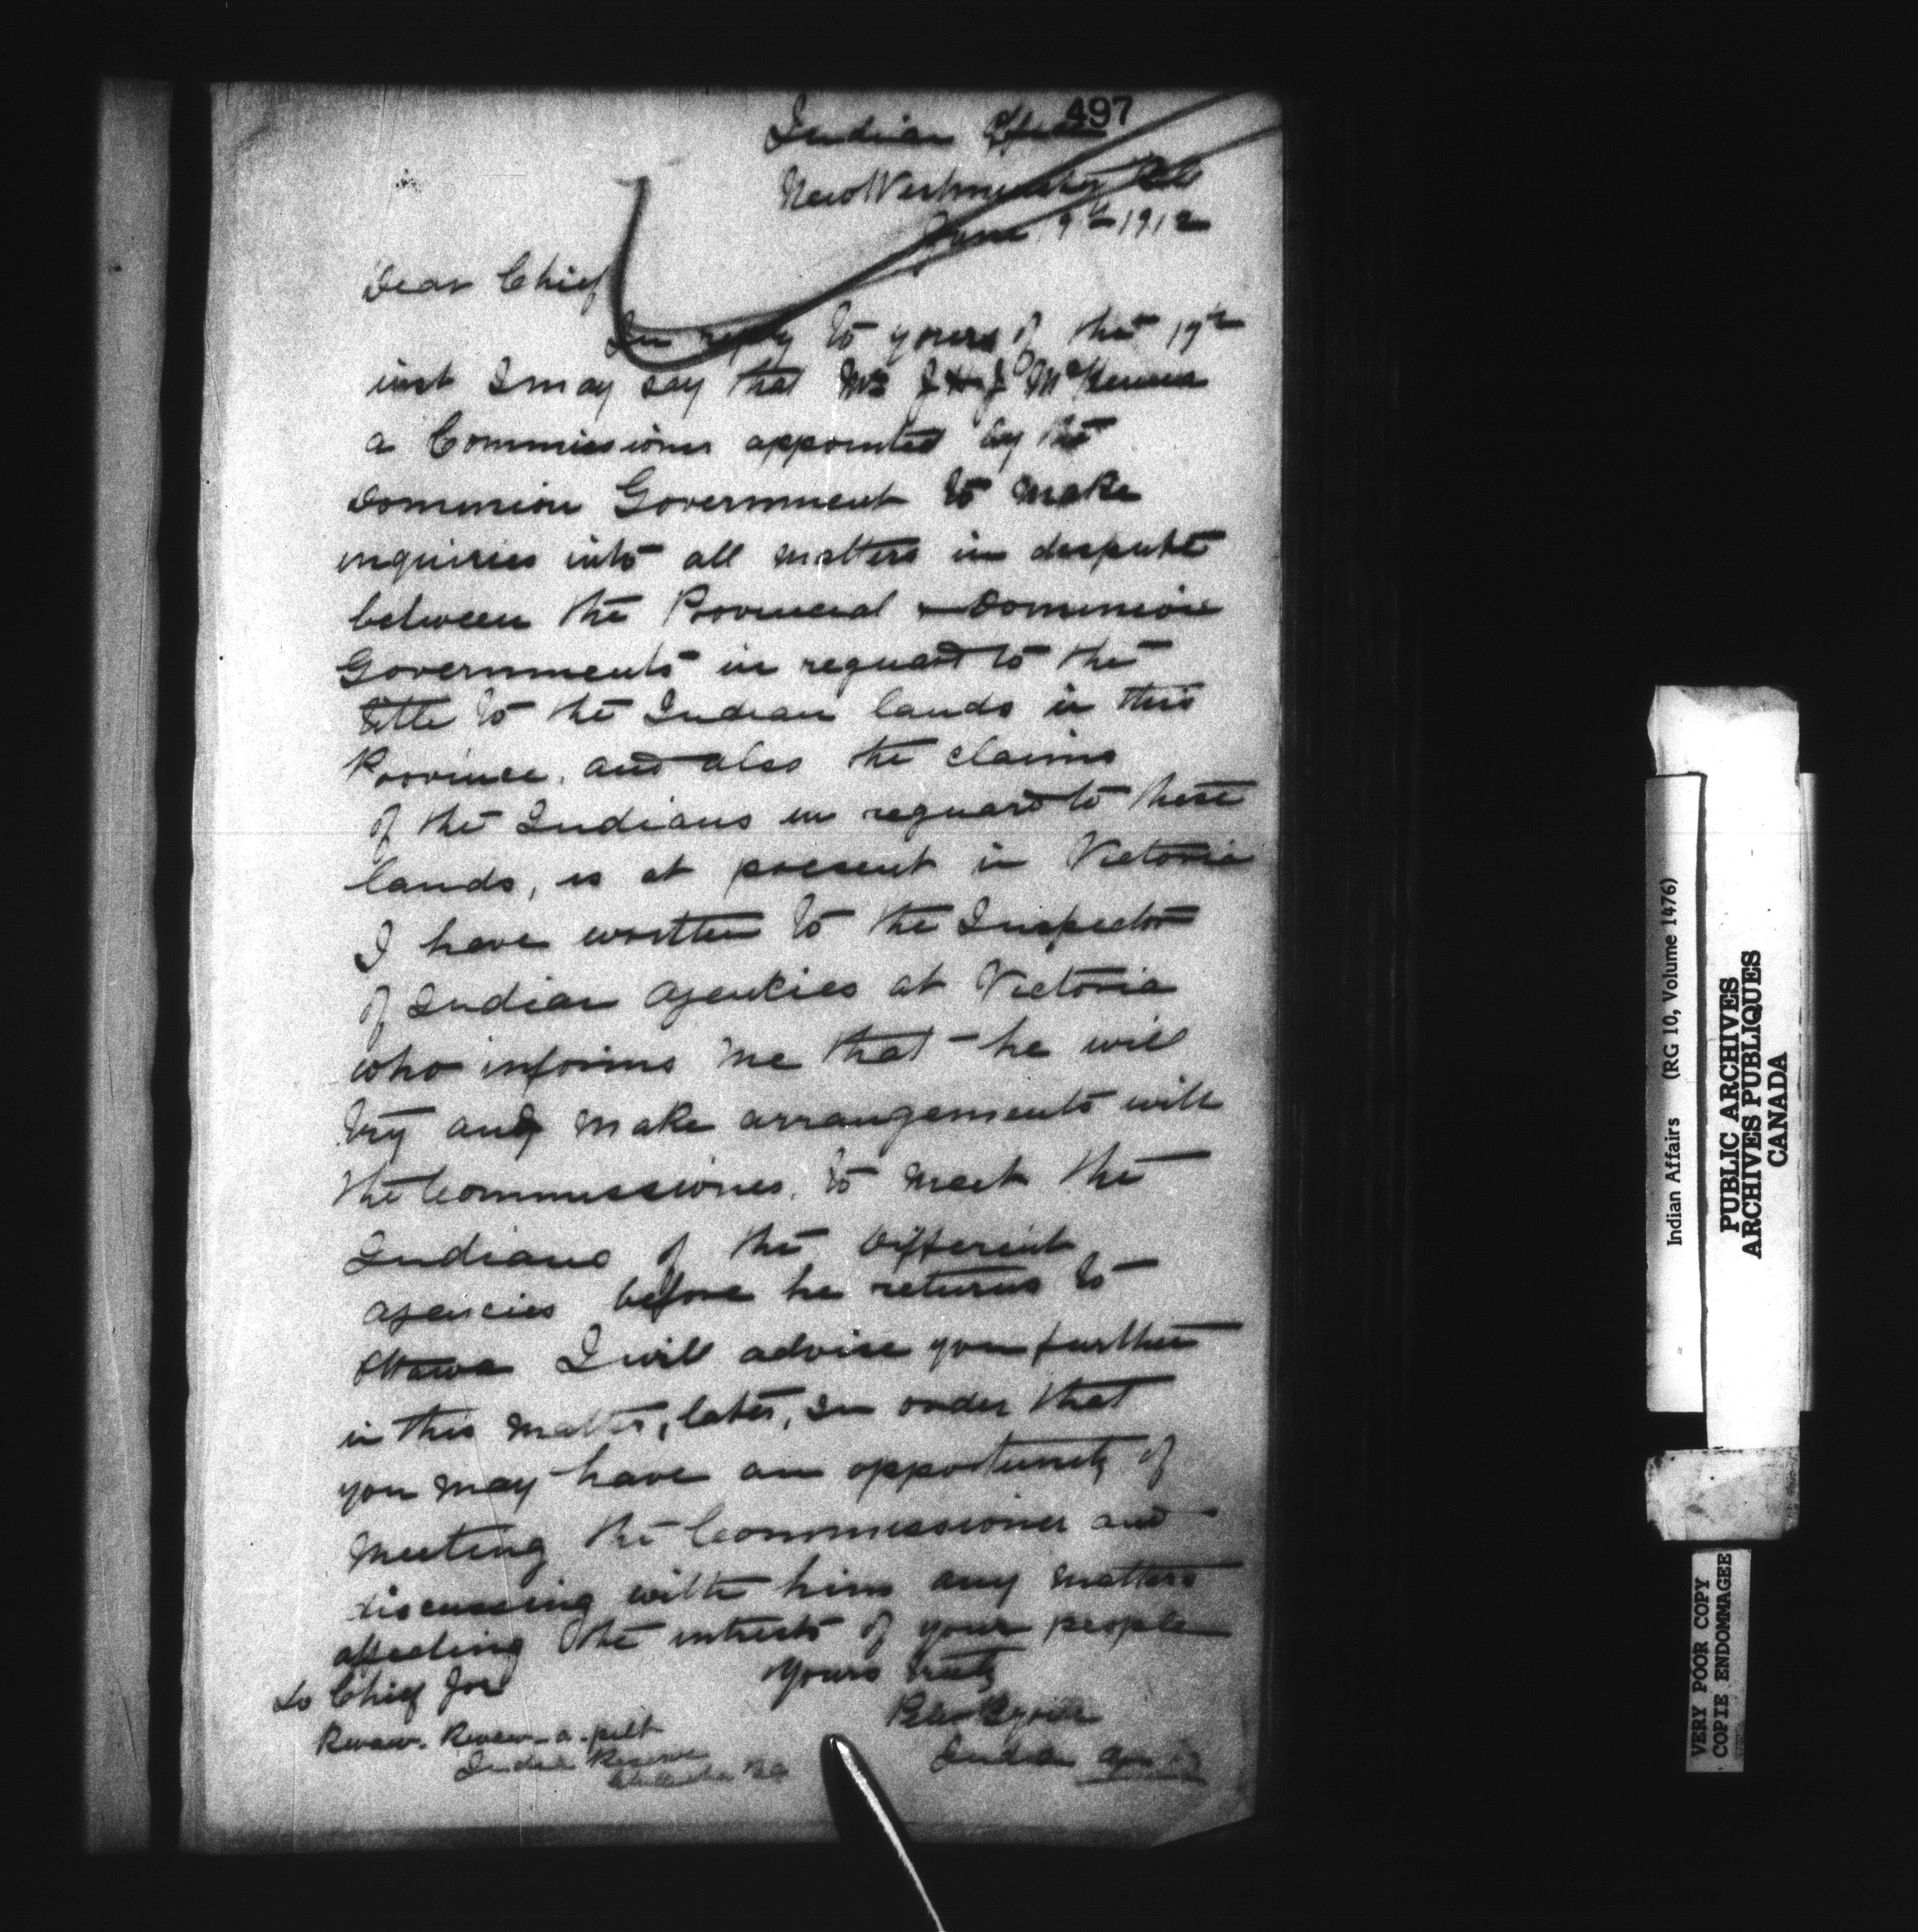 497
Indian Office
New Westminster BC
June 19th 1912
Dear Chief
In reply to yours of the 17th
inst I may say that Mr J.A.J. McKenna
a Commissioner appointed by the
Dominion Government to make
inquiries into all matters in despute
between the Provincial & Dominion
Governments in reguard to the
title to the Indian lands in this
Province, and also the claims
of the Indians in reguard to these
lands, is at present in Victoria
I have written to the Inspector
of Indian Agencies at Victoria
who informs me that he will
try and make arrangements with
the Commissioner, to meet the
Indians of the different
agencies before he returns to
Ottawa I will advise you further
in this matter, later, in order that
you may have an opportunity of
meeting the Commissioner and
discussing with him any matters
affecting the intrests of your people
Yours truly
Peter Byrne
Indian Agent
To Chief Joe
Indian Reserve
Indian Affairs (RG 10, Volume 1476)
PUBLIC ARCHIVES
ARCHIVES PUBLIQUES
CANADA
VERY POOR COPY
COPIE ENDOMMAGEE